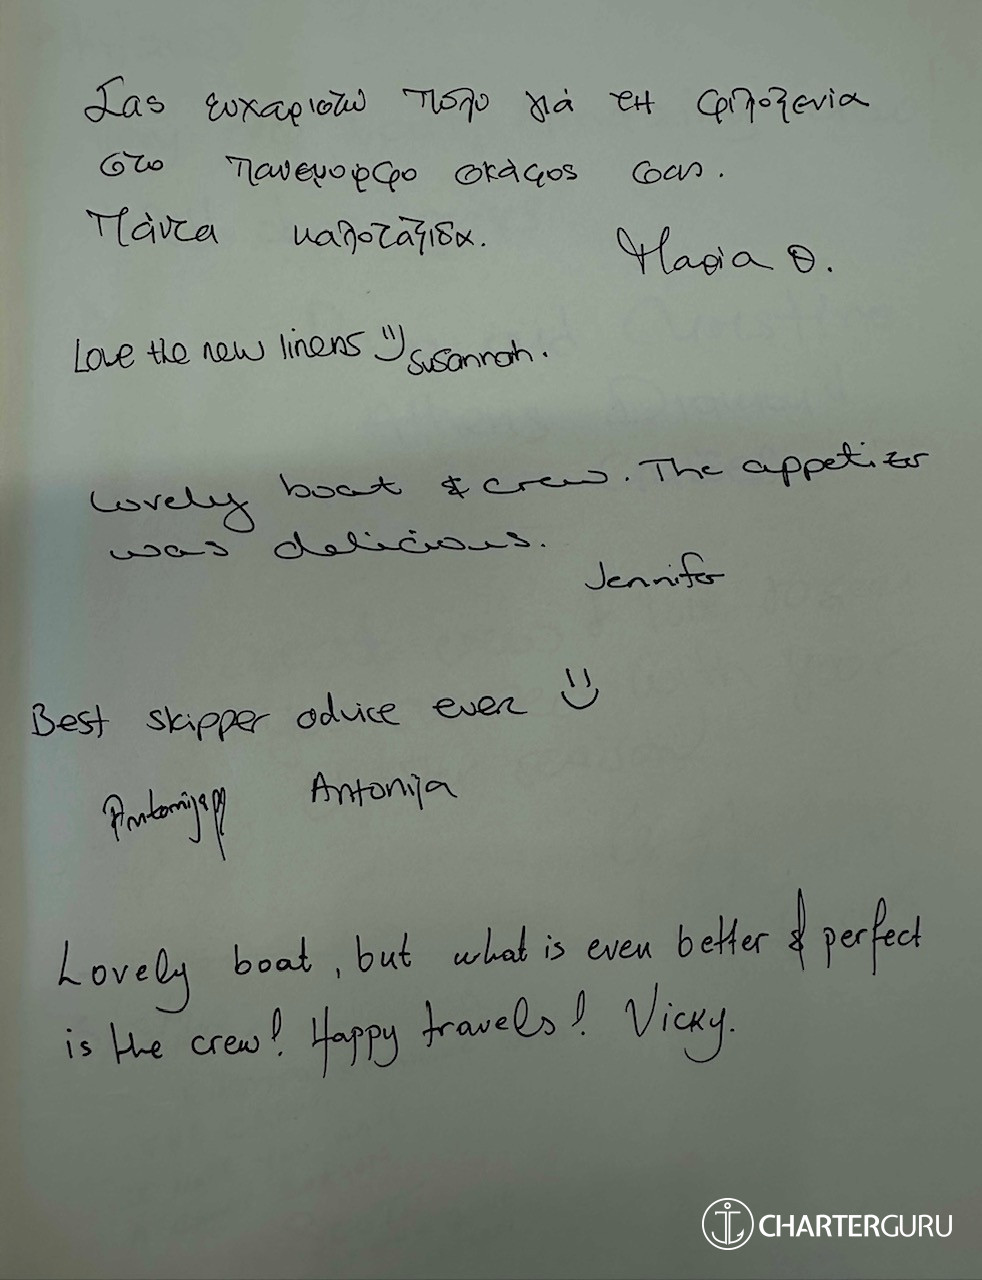 Σας ευχαριστώ πολυ γιά τη φιλοξενία
στο πανεμορφο σκάφος σας.
Πάντα καλοτάξιδα.
Μαρία Θ.
Love the new linens :) Susannah.
Lovely boat & crew. The appetizer
was delicious.
Jennifer
Best skipper advice ever :)
Antonija Antonija
Lovely boat, but what is even better & perfect
is the crew! Happy travels! Vicky.
CHARTERGURU